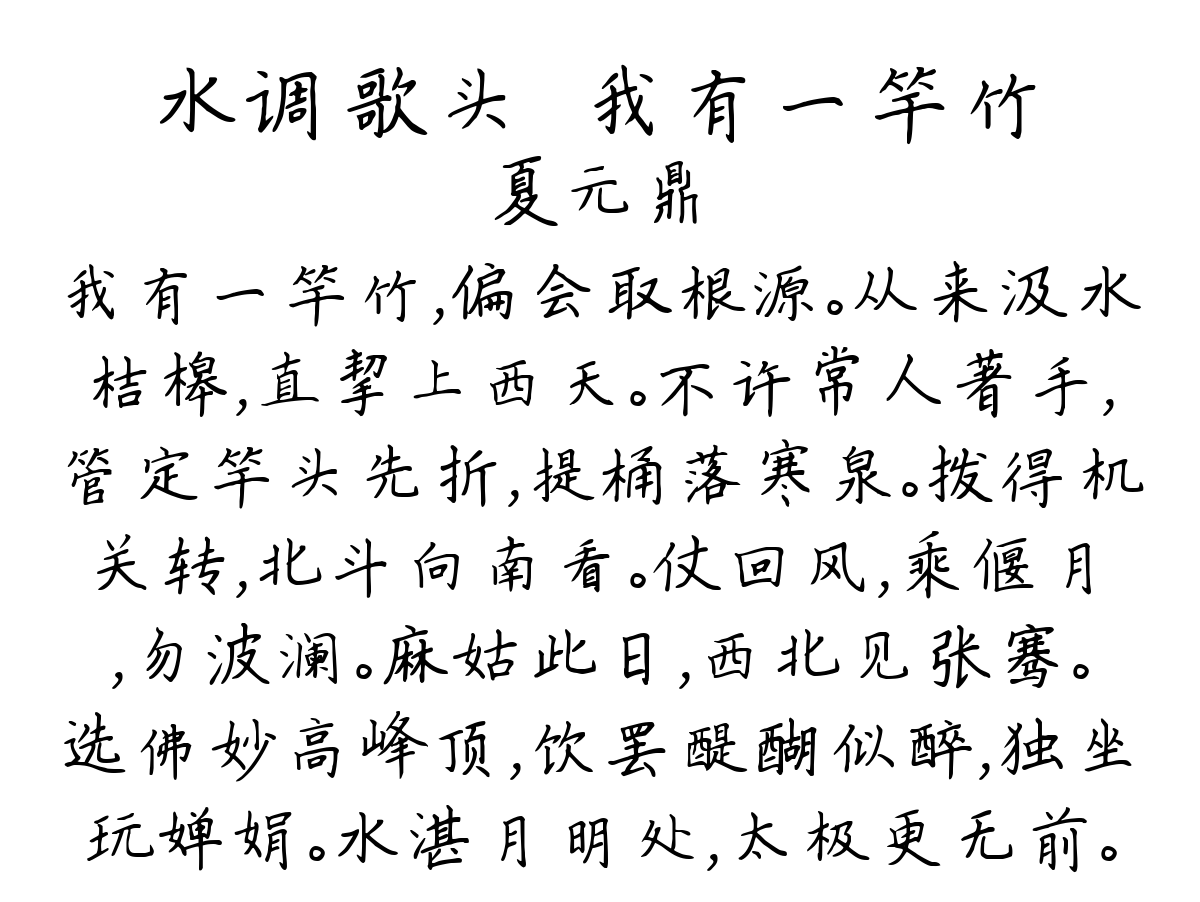 水调歌头 我有一竿竹
夏元鼎
我有一竿竹,偏会取根源。从来汲水
桔槔,直挈上西天。不许常人著手,
管定竿头先折,提桶落寒泉。拨得机
关转,北斗向南看。仗回风,乘偃月
,勿波澜。麻姑此日,西北见张骞。
选佛妙高峰顶,饮罢醍醐似醉,独坐
玩婵娟。水湛月明处,太极更无前。